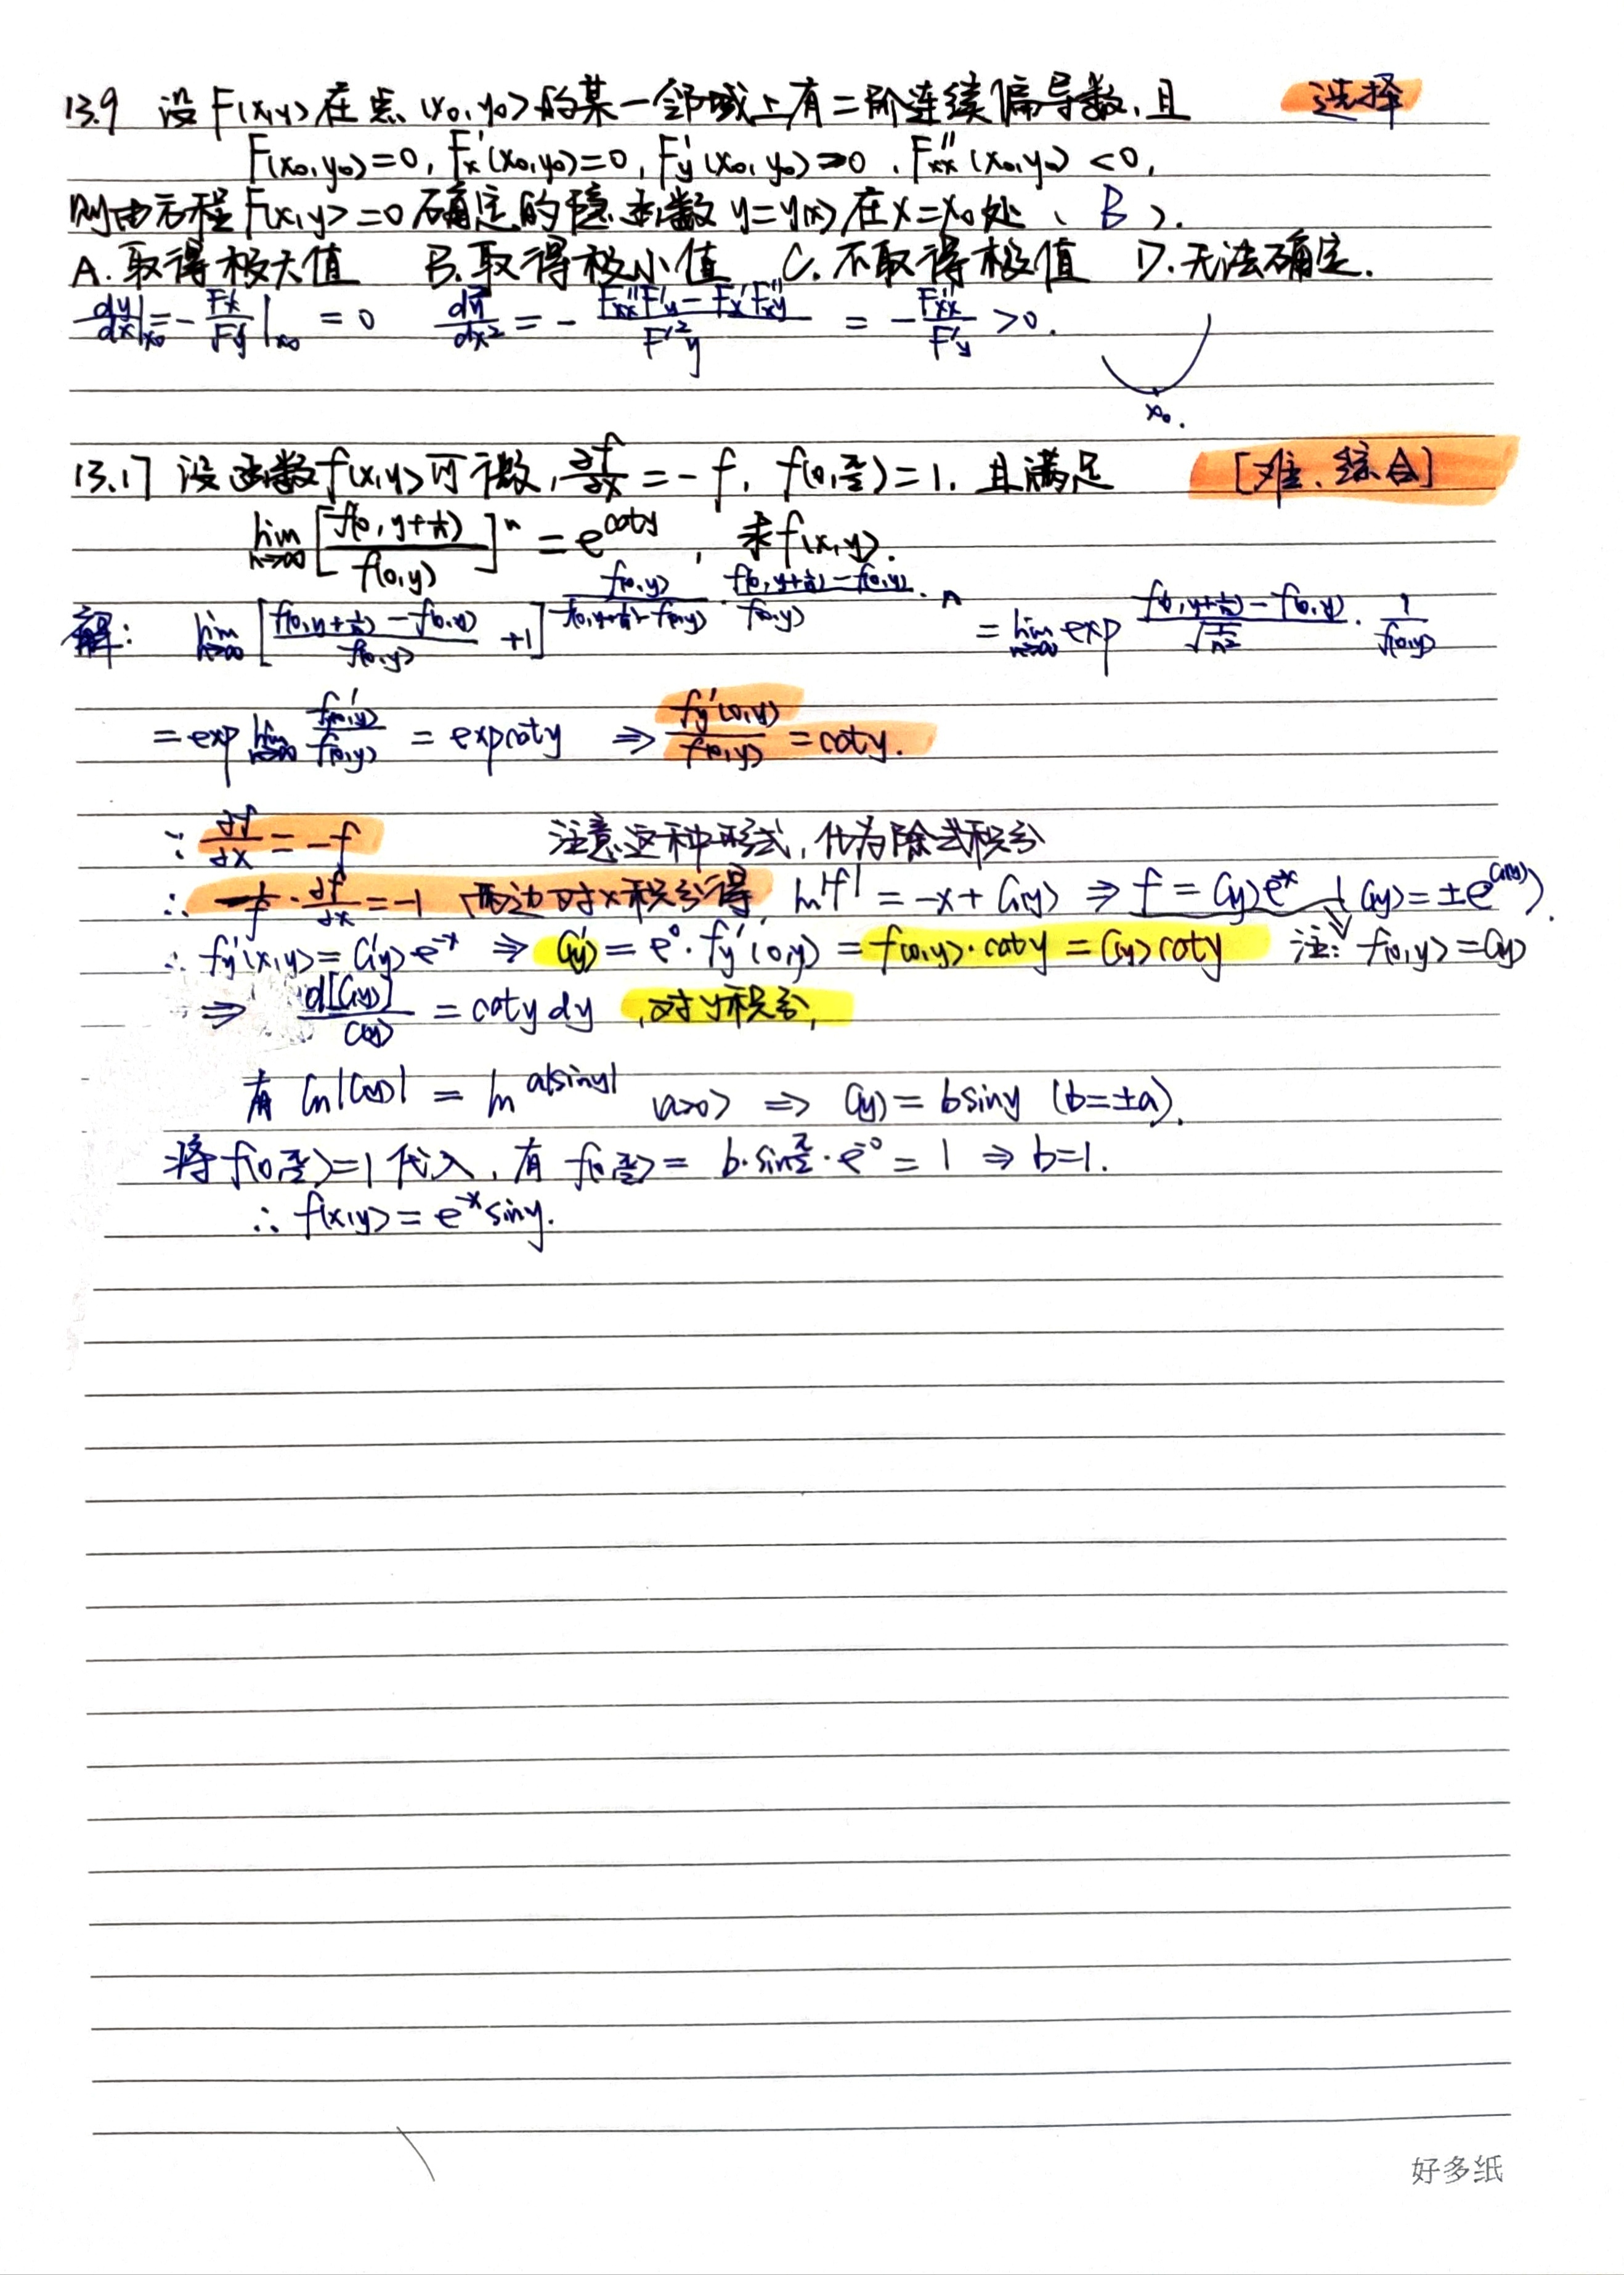 13.9 设F(x,y)在点(x₀,y₀)的某一邻域上有二阶连续偏导数,且 选择
F(x₀,y₀)=0, F'ₓ(x₀,y₀)=0, F'y(x₀,y₀)>0, F''ₓₓ(x₀,y₀)<0,
则由方程F(x,y)=0确定的隐函数y=y(x)在x=x₀处( B ).
A.取得极大值 B.取得极小值 C.不取得极值 D.无法确定.
dy/dx|x₀ = -F'x/F'y|x₀ = 0 d²y/dx² = -(F''xxF'y - F'xF''xy)/F'²y = -F''xx/F'y > 0.
x₀.
13.17 设函数f(x,y)可微, ∂f/∂x = -f, f(0,π/2)=1, 且满足 [难、综合]
lim n→∞ [f(0,y+1/n)/f(0,y)]ⁿ = e^(coty), 求f(x,y).
解: lim n→∞ [(f(0,y+1/n)-f(0,y))/f(0,y) +1]^(f(0,y)/(f(0,y+1/n)-f(0,y)) · (f(0,y+1/n)-f(0,y))/f(0,y) · n) = lim n→∞ exp (f(0,y+1/n)-f(0,y))/√(1/n²) · 1/f(0,y)
= exp lim n→∞ f'(0,y)/f(0,y) = exp coty ⇒ f'y(0,y)/f(0,y) = coty.
∵ ∂f/∂x = -f 注意这种形式,化为除式积分
∴ 1/f · ∂f/∂x = -1 两边对x积分得, ln|f| = -x + C₁(y) ⇒ f = C(y)e^(-x) (C(y)=±e^(C₁(y))).
∴ f'y(x,y)=C'(y)e^(-x) ⇒ C'(y) = e⁰·f'y(0,y) = f(0,y)·coty = C(y)coty 注: f(0,y)=C(y)
⇒ d[C(y)]/C(y) = coty dy ,对y积分,
有 ln|C(y)| = ln a|siny| (a>0) ⇒ C(y) = bsiny (b=±a).
将f(0,π/2)=1代入,有 f(0,π/2) = b·sinπ/2·e⁻⁰ = 1 ⇒ b=1.
∴ f(x,y) = e^(-x)siny.
好多纸